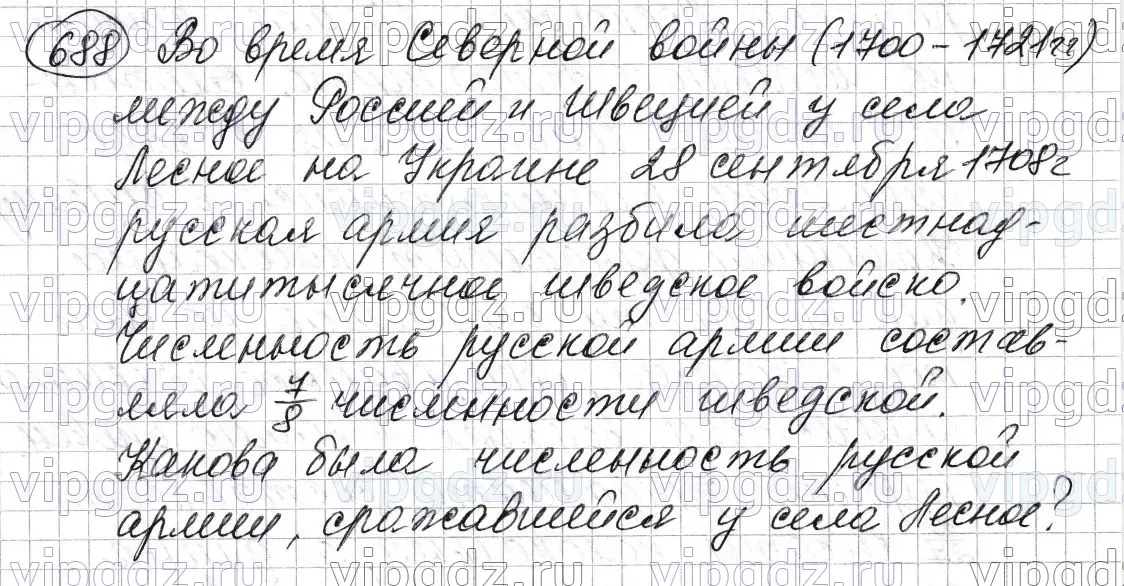 688 Во время Северной войны (1700 - 1721гг)
между Россией и Швецией у села
Лесное на Украине 28 сентября 1708г
русская армия разбила шестнад-
цатитысячное шведское войско.
Численность русской армии состав-
ляла 7/8 численности шведской.
Какова была численность русской
армии, сражавшейся у села Лесное?
vipgdz.ru